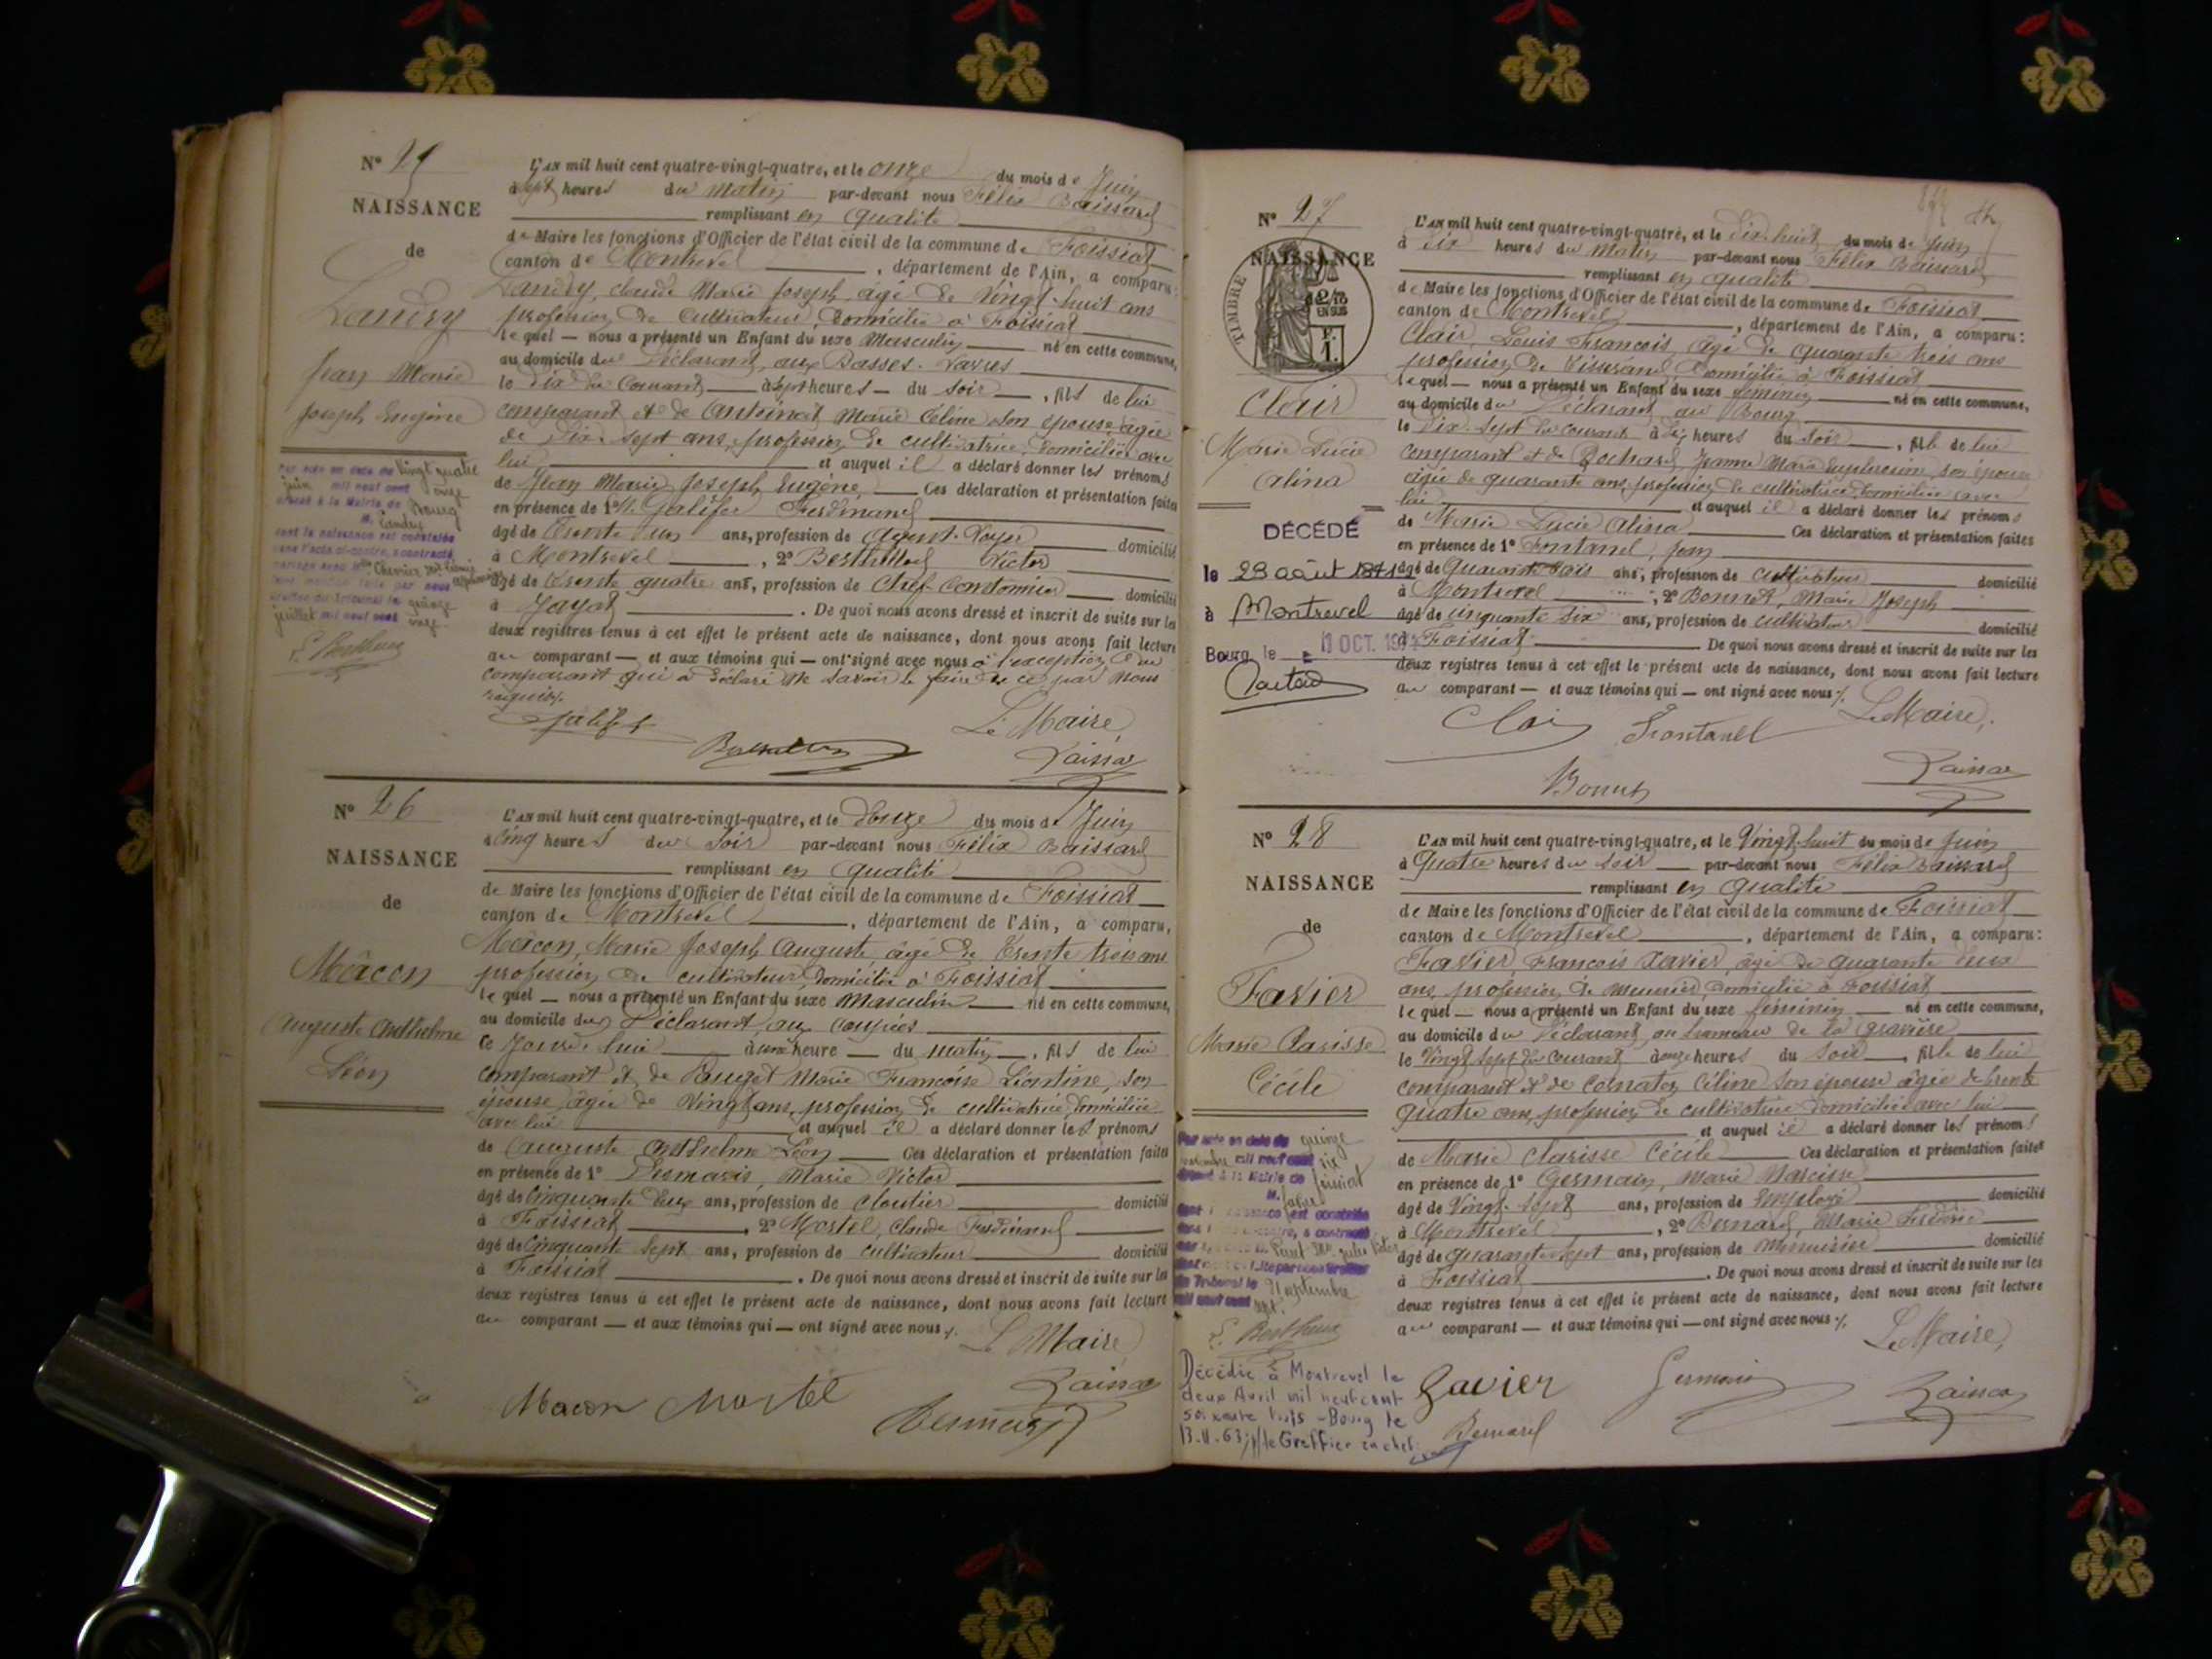 N° 25
NAISSANCE
de
Landry
Jean Marie
Joseph Eugène
L'AN mil huit cent quatre-vingt-quatre, et le onze du mois de Juin
à sept heures du matin par-devant nous Félix
remplissant en qualité
de Maire les fonctions d'Officier de l'état civil de la commune de Foissiat
canton de Montrevel, département de l'Ain, a comparu:
Landry, Claude Marie Joseph, âgé de Vingt-huit ans
profession de Cultivateur, domicilié à Foissiat
lequel — nous a présenté un Enfant du sexe Masculin né en cette commune,
au domicile du Déclarant, aux Basses
le dix du Courant à sept heures du soir, fils de lui
comparant et de Marie Céline son épouse âgée
de dix-sept ans, profession de cultivatrice, domiciliée avec
lui et auquel il a déclaré donner les prénoms
de Jean Marie Joseph Eugène Ces déclaration et présentation faites
en présence de 1° M. Galifer Ferdinand
âgé de trente un ans, profession de Agent-Voyer domicilié
à Montrevel, 2° Victor
âgé de trente quatre ans, profession de Chef Cantonnier domicilié
à Jayat. De quoi nous avons dressé et inscrit de suite sur les
deux registres tenus à cet effet le présent acte de naissance, dont nous avons fait lecture
au comparant — et aux témoins qui — ont signé avec nous à l'exception du
comparant qui a déclaré ne savoir le faire de ce par nous
requis.
Le Maire,
Par acte en date du vingt quatre
juin mil neuf cent onze
dressé à la Mairie de Bourg
M. Landry
dont la naissance est constatée
dans l'acte ci-contre, a contracté
mariage avec Chevrier
juillet mil neuf cent onze
N° 26
NAISSANCE
de
Mâcon
Auguste Anthelme
Léon
L'AN mil huit cent quatre-vingt-quatre, et le douze du mois de Juin
à cinq heures du soir par-devant nous Félix
remplissant en qualité
de Maire les fonctions d'Officier de l'état civil de la commune de Foissiat
canton de Montrevel, département de l'Ain, a comparu,
Mâcon, Marie Joseph Auguste, âgé de trente trois ans
profession de cultivateur, domicilié à Foissiat
lequel — nous a présenté un Enfant du sexe Masculin né en cette commune,
au domicile du Déclarant, aux
ce jourd'hui à une heure du matin, fils de lui
comparant et de Marie Françoise Léontine, son
épouse âgée de vingt ans, profession de cultivatrice, domiciliée
avec lui et auquel il a déclaré donner les prénoms
de Auguste Anthelme Léon Ces déclaration et présentation faites
en présence de 1° Desmaris, Marie Victor
âgé de cinquante deux ans, profession de cloutier domicilié
à Foissiat, 2° Mortel, Claude Ferdinand
âgé de cinquante sept ans, profession de cultivateur domicilié
à Foissiat. De quoi nous avons dressé et inscrit de suite sur les
deux registres tenus à cet effet le présent acte de naissance, dont nous avons fait lecture
au comparant — et aux témoins qui — ont signé avec nous.
Le Maire
Macon Mortel
N° 27
NAISSANCE
TIMBRE
2/10
EN SUS
Clair
Marie Lucie
Alina
DÉCÉDÉ
le 28 août 1971
à Montrevel
Bourg, le OCT.
L'AN mil huit cent quatre-vingt-quatre, et le dix-huit du mois de Juin
à dix heures du matin par-devant nous Félix
remplissant en qualité
de Maire les fonctions d'Officier de l'état civil de la commune de Foissiat
canton de Montrevel, département de l'Ain, a comparu:
Clair, Louis François, âgé de quarante trois ans
profession de Tisserand, domicilié à Foissiat
lequel — nous a présenté un Enfant du sexe féminin né en cette commune,
au domicile du Déclarant, au Bourg
le dix-sept du courant à dix heures du soir, fille de lui
comparant et de Jeanne Marie son épouse
âgée de quarante ans, profession de cultivatrice, domiciliée avec
lui et auquel il a déclaré donner les prénoms
de Marie Lucie Alina Ces déclaration et présentation faites
en présence de 1° Fontanel, Jean
âgé de quarante trois ans, profession de cultivateur domicilié
à Montrevel, 2° Bonnet, Marie Joseph
âgé de cinquante six ans, profession de cultivateur domicilié
à Foissiat. De quoi nous avons dressé et inscrit de suite sur les
deux registres tenus à cet effet le présent acte de naissance, dont nous avons fait lecture
au comparant — et aux témoins qui — ont signé avec nous.
Clair Fontanel Le Maire,
Bonnet
N° 28
NAISSANCE
de
Favier
Marie Clarisse
Cécile
L'AN mil huit cent quatre-vingt-quatre, et le Vingt-huit du mois de Juin
à quatre heures du soir par-devant nous Félix
remplissant en qualité
de Maire les fonctions d'Officier de l'état civil de la commune de Foissiat
canton de Montrevel, département de l'Ain, a comparu:
Favier François Xavier, âgé de quarante deux
ans, profession de meunier, domicilié à Foissiat
lequel — nous a présenté un Enfant du sexe féminin né en cette commune,
au domicile du Déclarant, au hameau de la
le vingt sept du courant à onze heures du soir, fille de lui
comparant et de Cornaton Céline son épouse âgée de trente
quatre ans, profession de cultivatrice domiciliée avec lui
et auquel il a déclaré donner les prénoms
de Marie Clarisse Cécile Ces déclaration et présentation faites
en présence de 1° Germain, Marie Narcisse
âgé de vingt-sept ans, profession de employé domicilié
à Montrevel, 2° Bernard, Marie
âgé de quarante-sept ans, profession de Menuisier domicilié
à Foissiat. De quoi nous avons dressé et inscrit de suite sur les
deux registres tenus à cet effet le présent acte de naissance, dont nous avons fait lecture
au comparant — et aux témoins qui — ont signé avec nous.
Le Maire,
Favier Germain
Bernard
Par acte en date du quinze
Décédée à Montrevel le
deux Avril mil neuf cent
soixante trois - Bourg le
le Greffier en chef